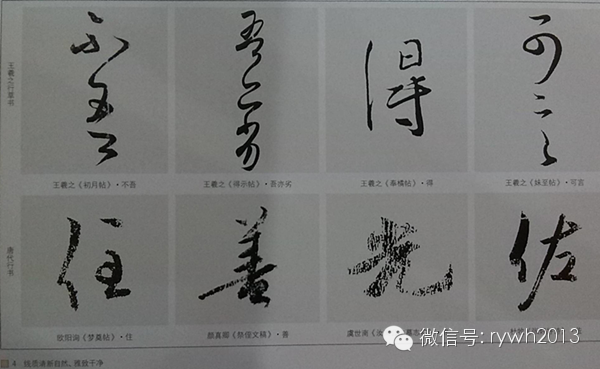 王羲之行草书
不吾
吾亦劣
得
可言
王羲之《初月帖》·不吾
王羲之《得示帖》·吾亦劣
王羲之《奉橘帖》·得
王羲之《妹至帖》·可言
唐代行书
住
善
光
佐
欧阳询《梦奠帖》·住
颜真卿《祭侄文稿》·善
虞世南《汝
微信号: rywh2013
4. 线质清新自然，干净